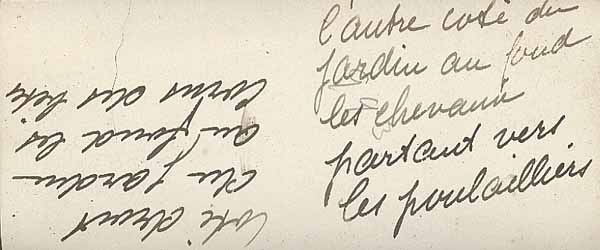 l'autre coté du
jardin au fond
les chevaux
partant vers
les poulailliers
Coté droit
du jardin
au fond les
coins des